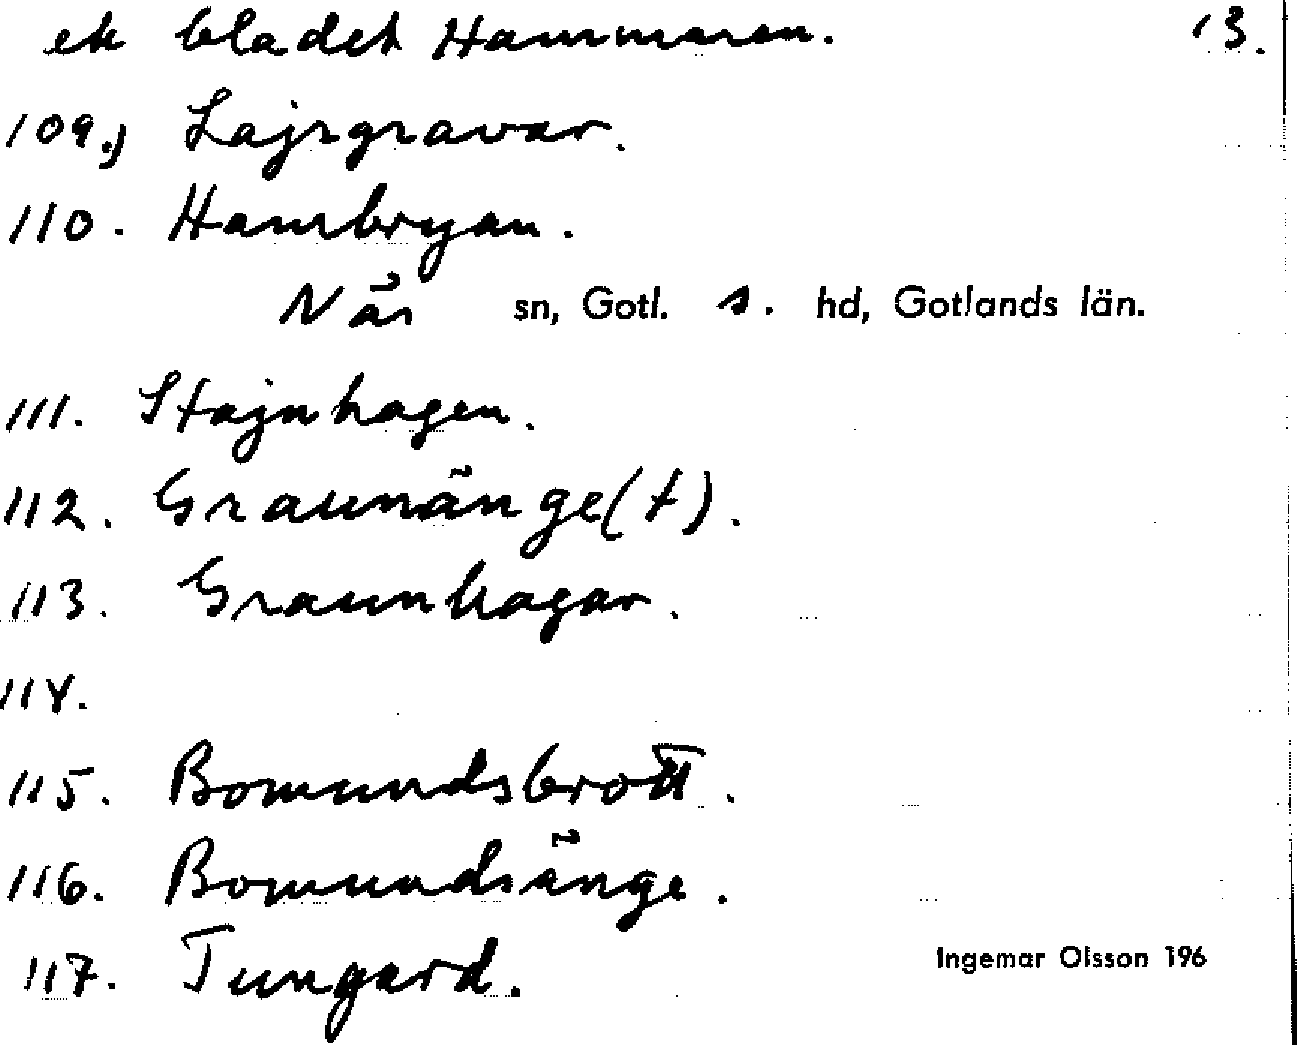 ek bladet Hammaren. 13.
109.) Lajrgravar.
110. Hambryan.
När sn, Gotl. s. hd, Gotlands län.
111. Stajnhagen.
112. Graunänge(t).
113. Graunhagar.
114.
115. Bomundsbrott.
116. Bomundsänge.
117. Tungard.
Ingemar Olsson 196